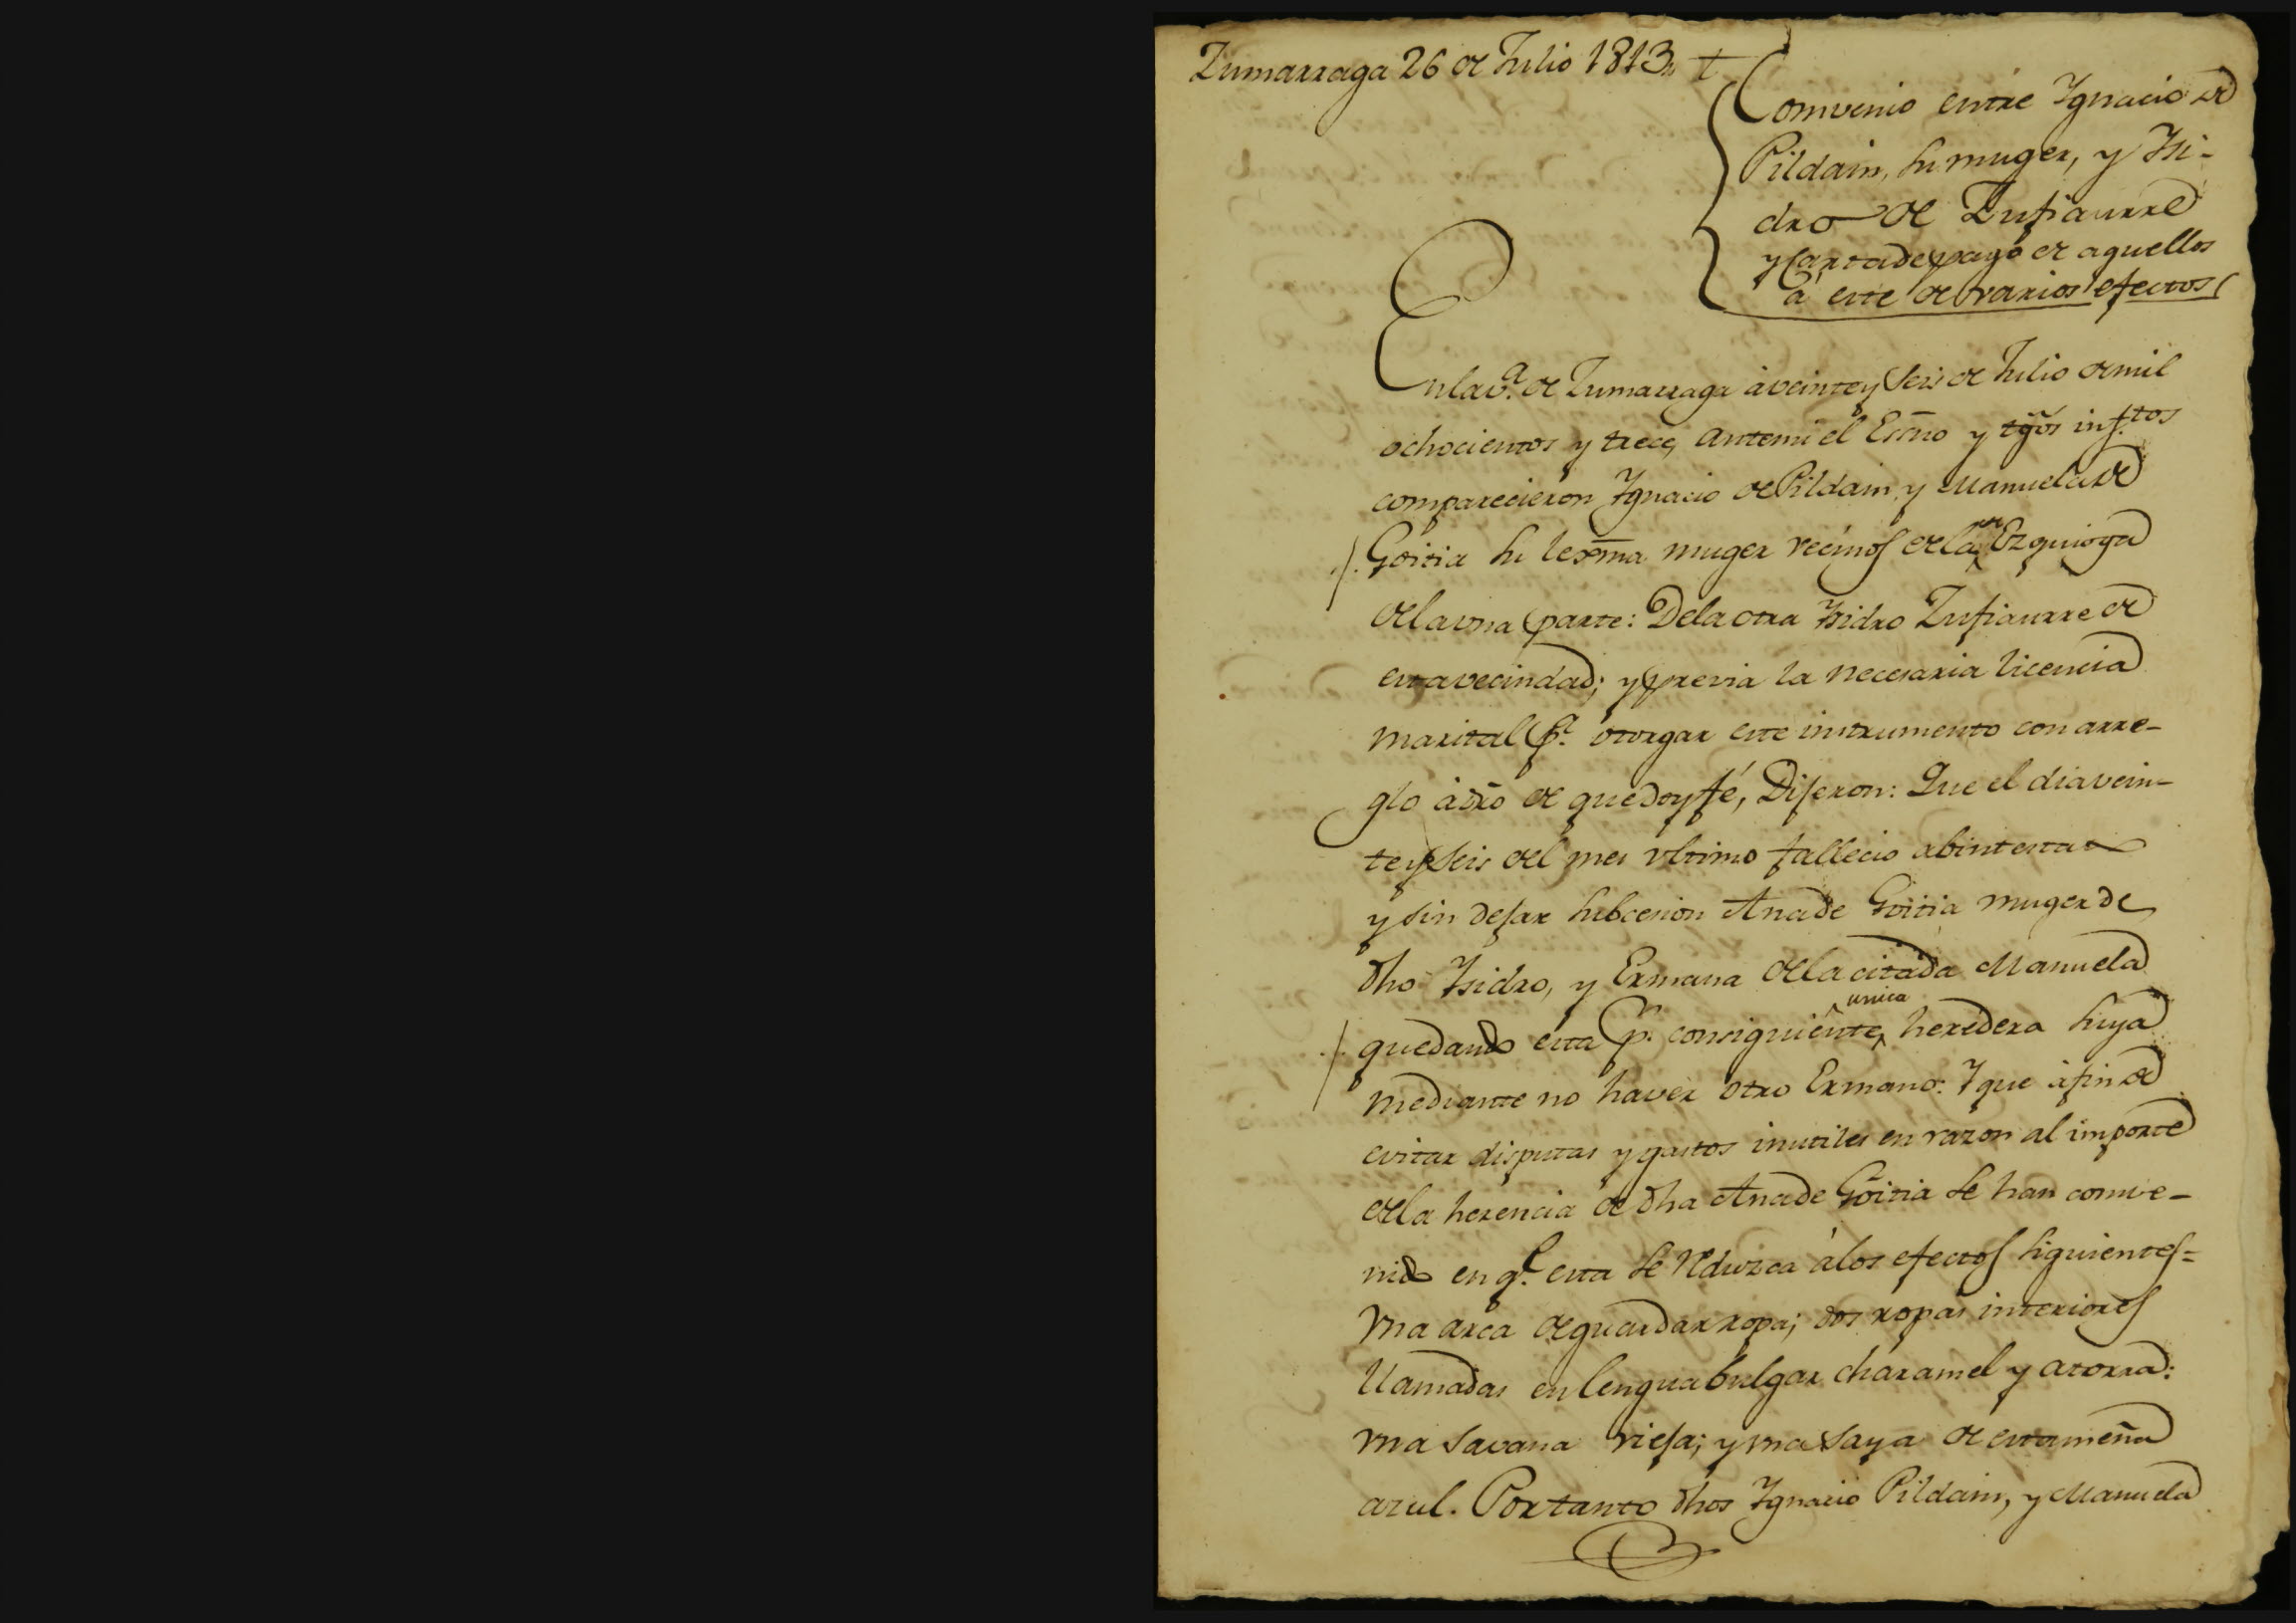 Zumarraga 26 de Julio 1813,, †
Convenio entre Ygnacio de
Pildain, su muger, y Ysi-
dro de Zufiaurre
y Carta de pago de aquellos
à este de varios efectos
En la v.ª de Zumarraga à veinte y seis de Julio de mil
ochocientos y trece, ante mi el Esno y tgos infos
comparecieron Ygnacio de Pildain, y Manuela de
Goitia su lexma muger vecinos de la de Ezquioga
de la una parte: De la otra Ysidro Zufiaurre de
esta vecindad; y previa la necesaria licencia
marital p.ª otorgar este instrumento con arre-
glo à dro de que doy fé, Dijeron: Que el dia vein-
te y seis del mes ultimo fallecio abintestato
y sin dejar subcesion Ana de Goitia muger de
dho Ysidro, y Ermana de la citada Manuela
quedando esta p.r consiguiente unica heredera suya
mediante no haver otro Ermano: Y que à fin de
evitar disputas y gastos inutiles en razon al importe
de la herencia de dha Ana de Goitia se han conve-
nido en q.e esta se reduzca à los efectos siguientes=
Una arca de guardar ropa; dos ropas interiores
llamadas en lengua bulgar charamel y atorra:
una savana vieja; y una saya de estameña
azul. Por tanto dhos Ygnacio Pildain, y Manuela